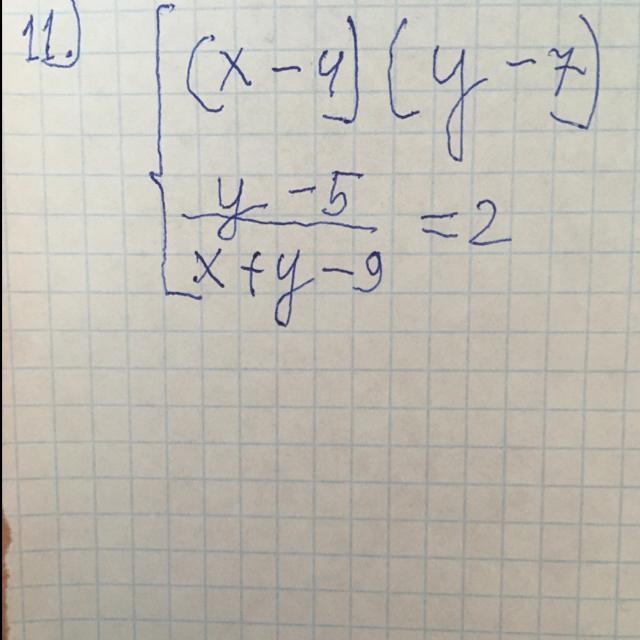 11.) (x-4)(y-7)
y-5
x+y-9 =2